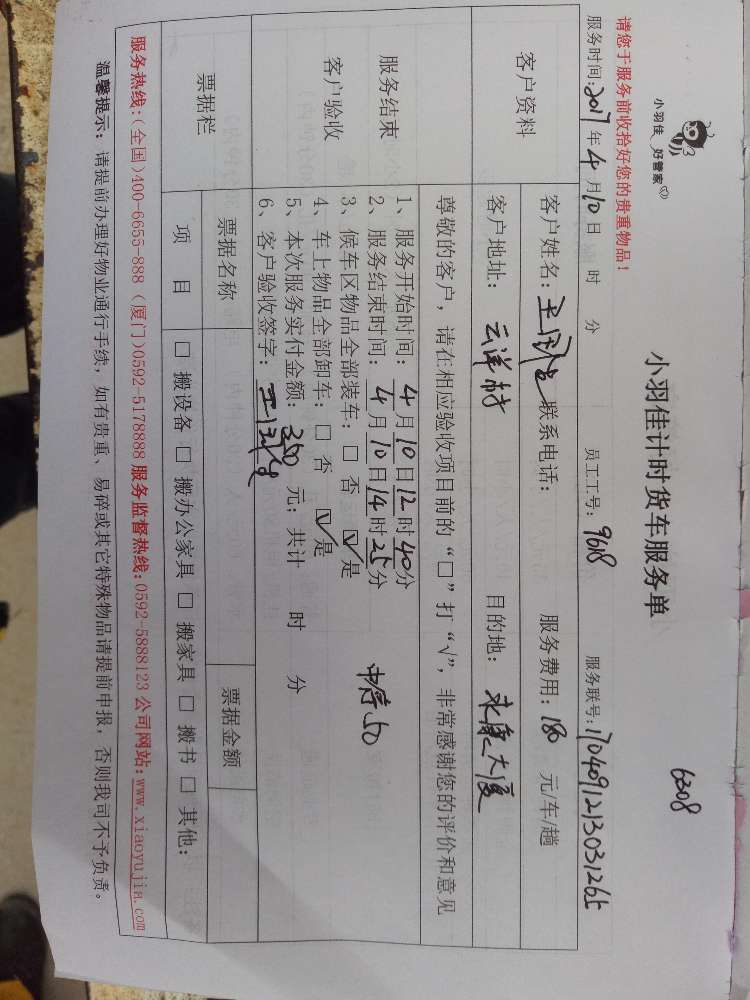 小羽佳 好管家
6308
小羽佳计时货车服务单
请您于服务前收拾好您的贵重物品！
服务时间:2017年4月10日 时 分 员工工号: 9618 服务联号:17040912130312 65
客户资料
客户姓名: 联系电话: 服务费用: 180 元/车/趟
客户地址: 云洋村 目的地: 永康大厦
服务结束
客户验收
尊敬的客户，请在相应验收项目前的“□”打“√”，非常感谢您的评价和意见
1、服务开始时间: 4月10日12时40分
2、服务结束时间: 4月10日14时25分
3、候车区物品全部装车: □ 否 ☑ 是
4、车上物品全部卸车: □ 否 ☑ 是
5、本次服务实付金额: 350 元; 共计 时 分
6、客户验收签字:
中停50
票据栏
票据名称 票据金额
项 目 □ 搬设备 □ 搬办公家具 □ 搬家具 □ 搬书 □ 其他:
服务热线:(全国)400-6655-888 (厦门)0592-5178888 服务监督热线:0592-5888123 公司网站:www.xiaoyujia.com
温馨提示: 请提前办理好物业通行手续，如有贵重、易碎或其它特殊物品请提前申报，否则我司不予负责。